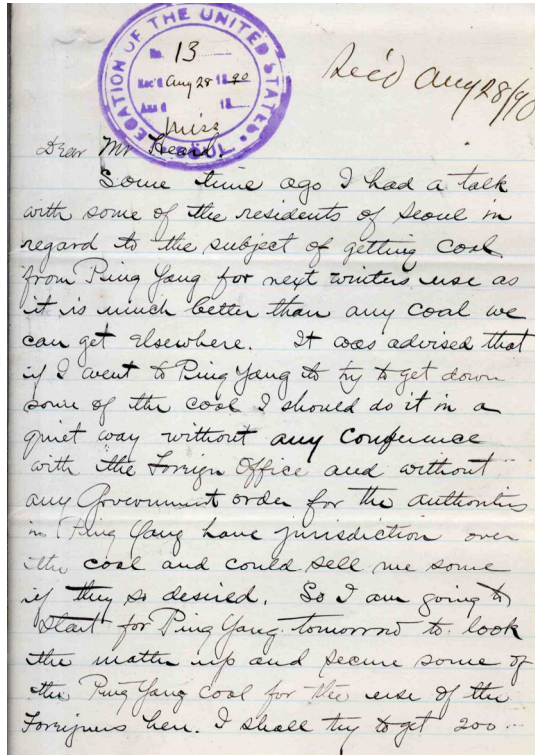 LEGATION OF THE UNITED STATES
No. 13
Rec'd Aug 28 1890
Ans'd 18
Misc
SEOUL
Rec'd Aug 28/90
Dear Mr Heard.
Some time ago I had a talk
with some of the residents of Seoul in
regard to the subject of getting coal
from Ping Yang for next winters use as
it is much better than any coal we
can get elsewhere. It was advised that
if I went to Ping Yang to try to get down
some of the coal I should do it in a
quiet way without any conference
with the Foreign Office and without
any Government order for the authorities
in Ping Yang have jurisdiction over
the coal and could sell me some
if they so desired. So I am going to
start for Ping Yang tomorrow to look
the matter up and secure some of
the Ping Yang coal for the use of the
Foreigners here. I shall try to get 200